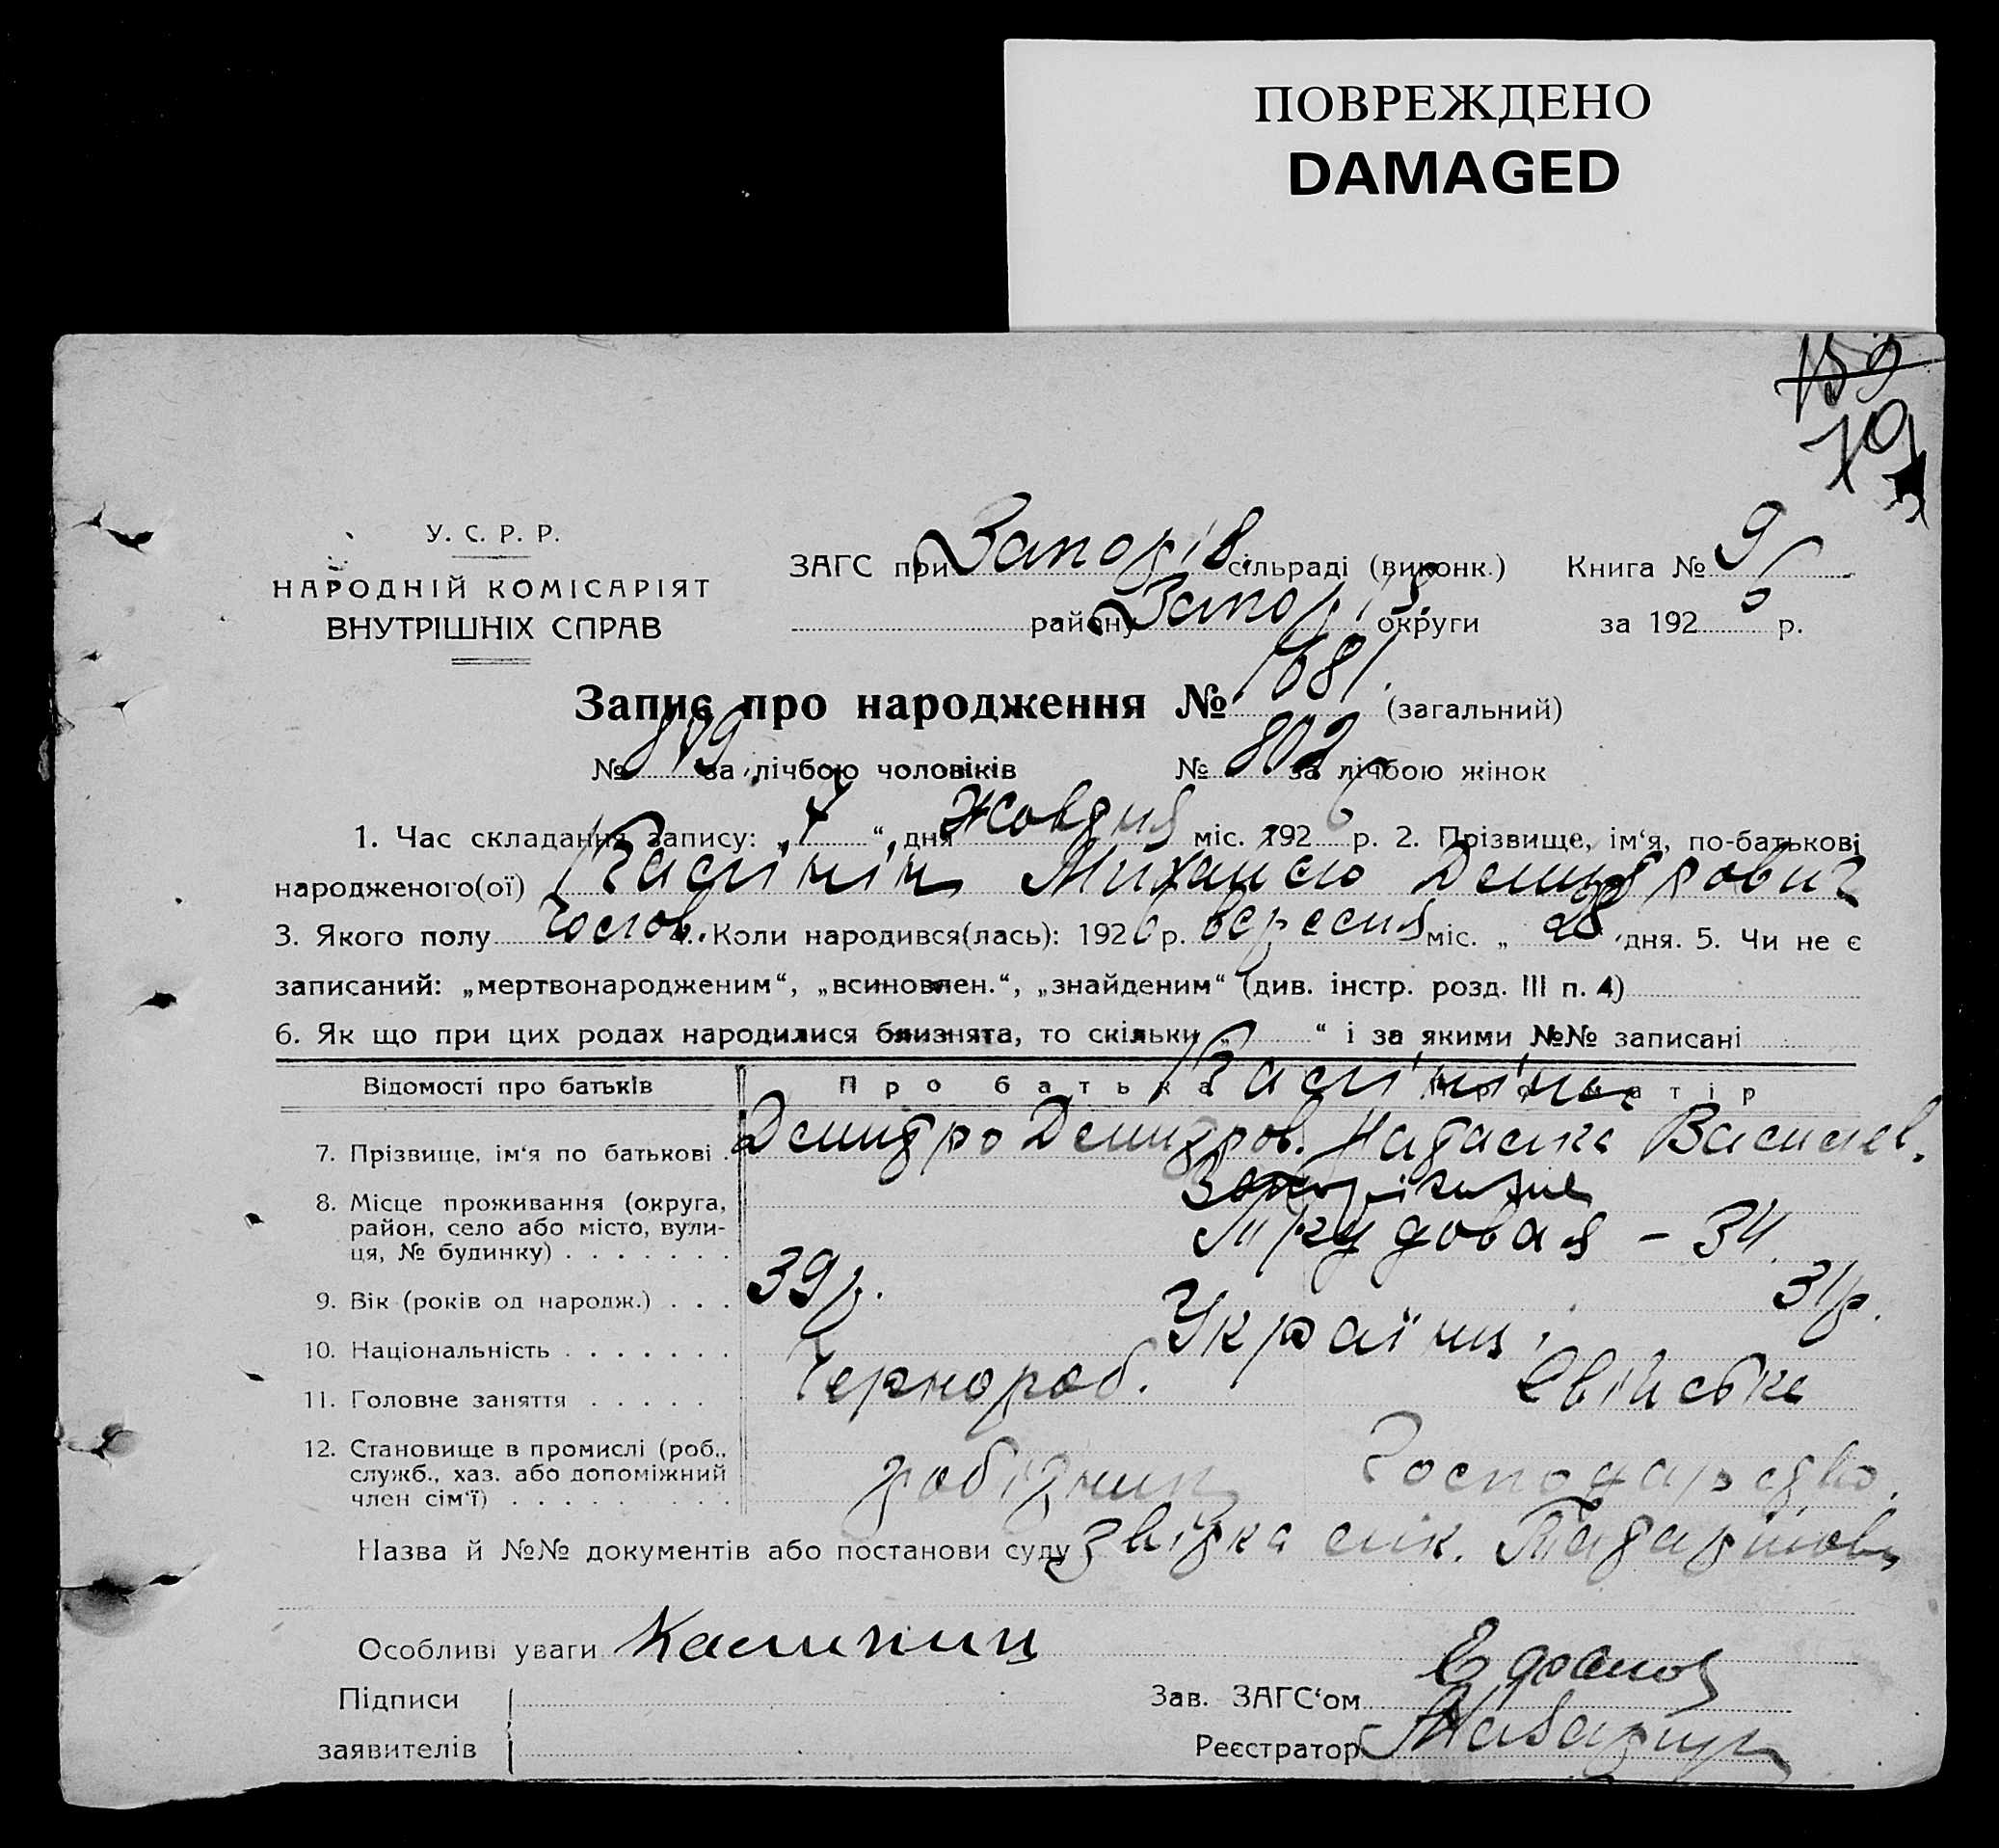 ПОВРЕЖДЕНО
DAMAGED
159
79
У. С. Р. Р.
НАРОДНІЙ КОМІСАРІЯТ
ВНУТРІШНІХ СПРАВ
ЗАГС при Запоріз сільраді (виконк.) Книга № 9
району Запоріз округи за 1926 р.
Запис про народження № 1681 (загальний)
№ 879 за лічбою чоловіків № 802 за лічбою жінок
1. Час складання запису: „ “ дня Жовтня міс. 1926 р. 2. Прізвище, ім‘я, по-батькові
народженого(ої) Калінін Михайло Дмитрович
3. Якого полу чолов. 4. Коли народився(лась): 1926 р. вересня міс. „ 28 “ дня. 5. Чи не є
записаний: „мертвонародженим“, „всиновлен.“, „знайденим“ (див. інстр. розд. III п. 4)
6. Як що при цих родах народилися близнята, то скільки „ “ і за якими №№ записані
Відомості про батьків Про батька Про матір
Калініни
7. Прізвище, ім‘я по батькові Дмитро Дмитров. Наталка Василев.
8. Місце проживання (округа, Запоріжжя
район, село або місто, вули- Трудовая – 34.
ця, № будинку)
9. Вік (років од народж.) 39 р. 31 р.
10. Національність Україн.
11. Головне заняття Чернороб. Свійське
12. Становище в промислі (роб.,
служб., хаз. або допоміжний робітник Господарство.
член сім‘ї)
Назва й №№ документів або постанови суду звідка
Особливі уваги Калинин
Підписи
заявителів
Зав. ЗАГС‘ом
Реєстратор